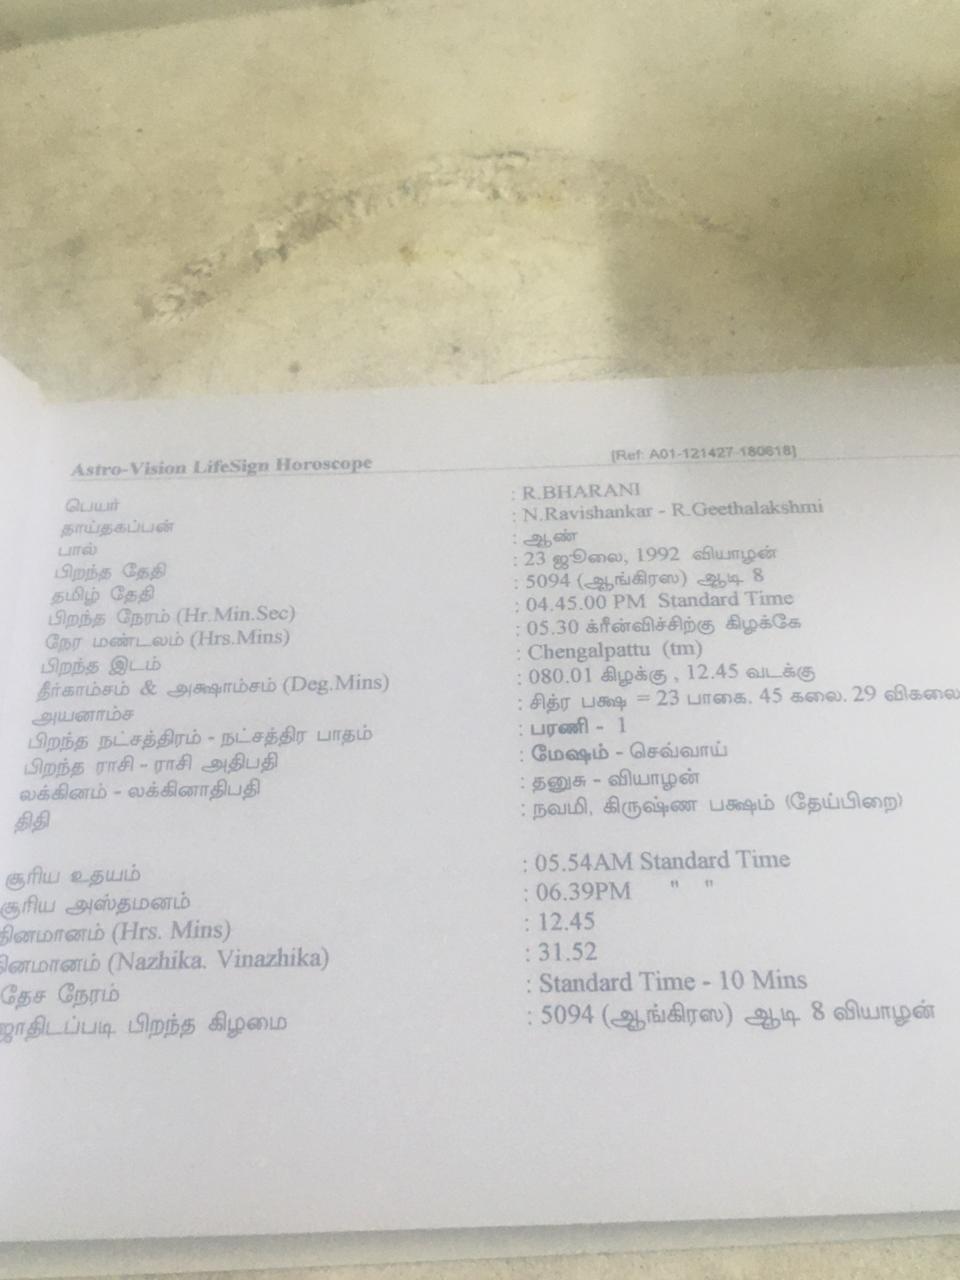 Astro-Vision LifeSign Horoscope [Ref: A01-121427-180618]
பெயர் : R.BHARANI
தாய்தகப்பன் : N.Ravishankar - R.Geethalakshmi
பால் : ஆண்
பிறந்த தேதி : 23 ஜூலை, 1992 வியாழன்
தமிழ் தேதி : 5094 (ஆங்கிரஸ) ஆடி 8
பிறந்த நேரம் (Hr.Min.Sec) : 04.45.00 PM Standard Time
நேர மண்டலம் (Hrs.Mins) : 05.30 க்ரீன்விச்சிற்கு கிழக்கே
பிறந்த இடம் : Chengalpattu (tm)
தீர்காம்சம் & அக்ஷாம்சம் (Deg.Mins) : 080.01 கிழக்கு , 12.45 வடக்கு
அயனாம்ச : சித்ர பக்ஷ = 23 பாகை. 45 கலை. 29 விகலை
பிறந்த நட்சத்திரம் - நட்சத்திர பாதம் : பரணி - 1
பிறந்த ராசி - ராசி அதிபதி : மேஷம் - செவ்வாய்
லக்கினம் - லக்கினாதிபதி : தனுசு - வியாழன்
திதி : நவமி, கிருஷ்ண பக்ஷம் (தேய்பிறை)
சூரிய உதயம் : 05.54AM Standard Time
சூரிய அஸ்தமனம் : 06.39PM " "
தினமானம் (Hrs. Mins) : 12.45
தினமானம் (Nazhika. Vinazhika) : 31.52
தேச நேரம் : Standard Time - 10 Mins
ஜாதிடப்படி பிறந்த கிழமை : 5094 (ஆங்கிரஸ) ஆடி 8 வியாழன்